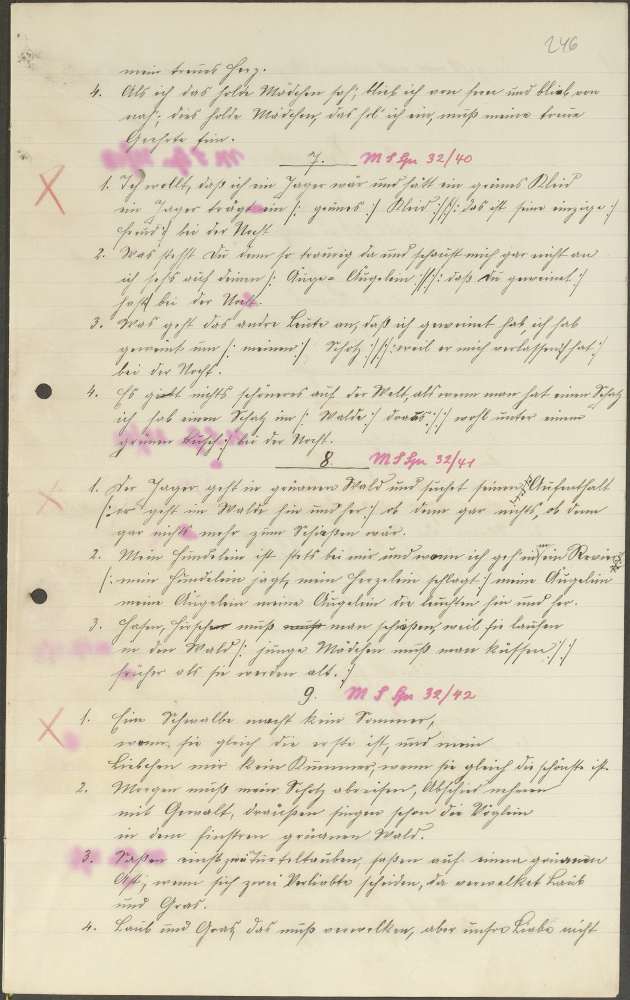 246
mein treues Herz.
4. Als ich das holde Mädchen sah; blieb ich von fern und blieb von
nah; dies holde Mädchen, das hol' ich ein, muß meine treue
Geehrte sein.
7. M S Gr 32/40
1. Ich wollt, daß ich ein Jager wär und hätt ein grünes Kleid
ein Jager trägt ein /: grünes :/ Kleid :/ /: das ist seine einzige :/
Freud :/ bei der Nacht
2. Was stehst du denn so traurig da und schaust mich gar nicht an
ich sehs auch deinen /: Auge= Äugelein :/ /: daß du geweinet :/
hast bei der Nacht.
3. Was geht das andre Leute an, daß ich geweinet hab, ich hab
geweint um /: meinen :/ Schatz :/ /: weil er mich verlassen hat :/
bei der Nacht.
4. Es giebt nichts schöneres auf der Welt, als wenn man hat einen Schatz
ich hab einen Schatz im /: Walde :/ draus :/ :/ wohl unter einem
grünen Busch :/ bei der Nacht.
8. M S Gr 32/41
1. Der Jager geht in grünen Wald und suchet seinen Aufenthalt
/: er geht im Walde hin und her :/ ob denn gar nichts, ob denn
gar nichts mehr zum Schießen wär.
2. Mein Hündelein ist stets bei mir und wenn ich geh in mein Revier
/: mein Hündelein jagt, mein Herzelein schlagt :/ meine Äugelein
meine Äugelein meine Äugelein die leuchten hin und her.
3. Hasen, Hirschen muß man schießen, weil sie laufen
in den Wald /: junge Mädchen muß man küssen :/ :/
früher als sie werden alt. :/
9. M S Gr 32/42
1. Eine Schwalbe macht kein Sommer,
wenn sie gleich die erste ist, und mein
Liebchen mir kein Kummer, wenn sie gleich die schönste ist.
2. Morgen muß mein Schatz abreisen, Abschied nehmen
mit Gewalt, draußen singen schon die Vöglein
in dem finstren grünen Wald.
3. Saßen einst zwei Turteltauben, saßen auf einem grünen
Ast; wenn sich zwei Verliebte scheiden, da verwelket Laub
und Gras.
4. Laub und Gras, das muß verwelken, aber unsre Liebe nicht